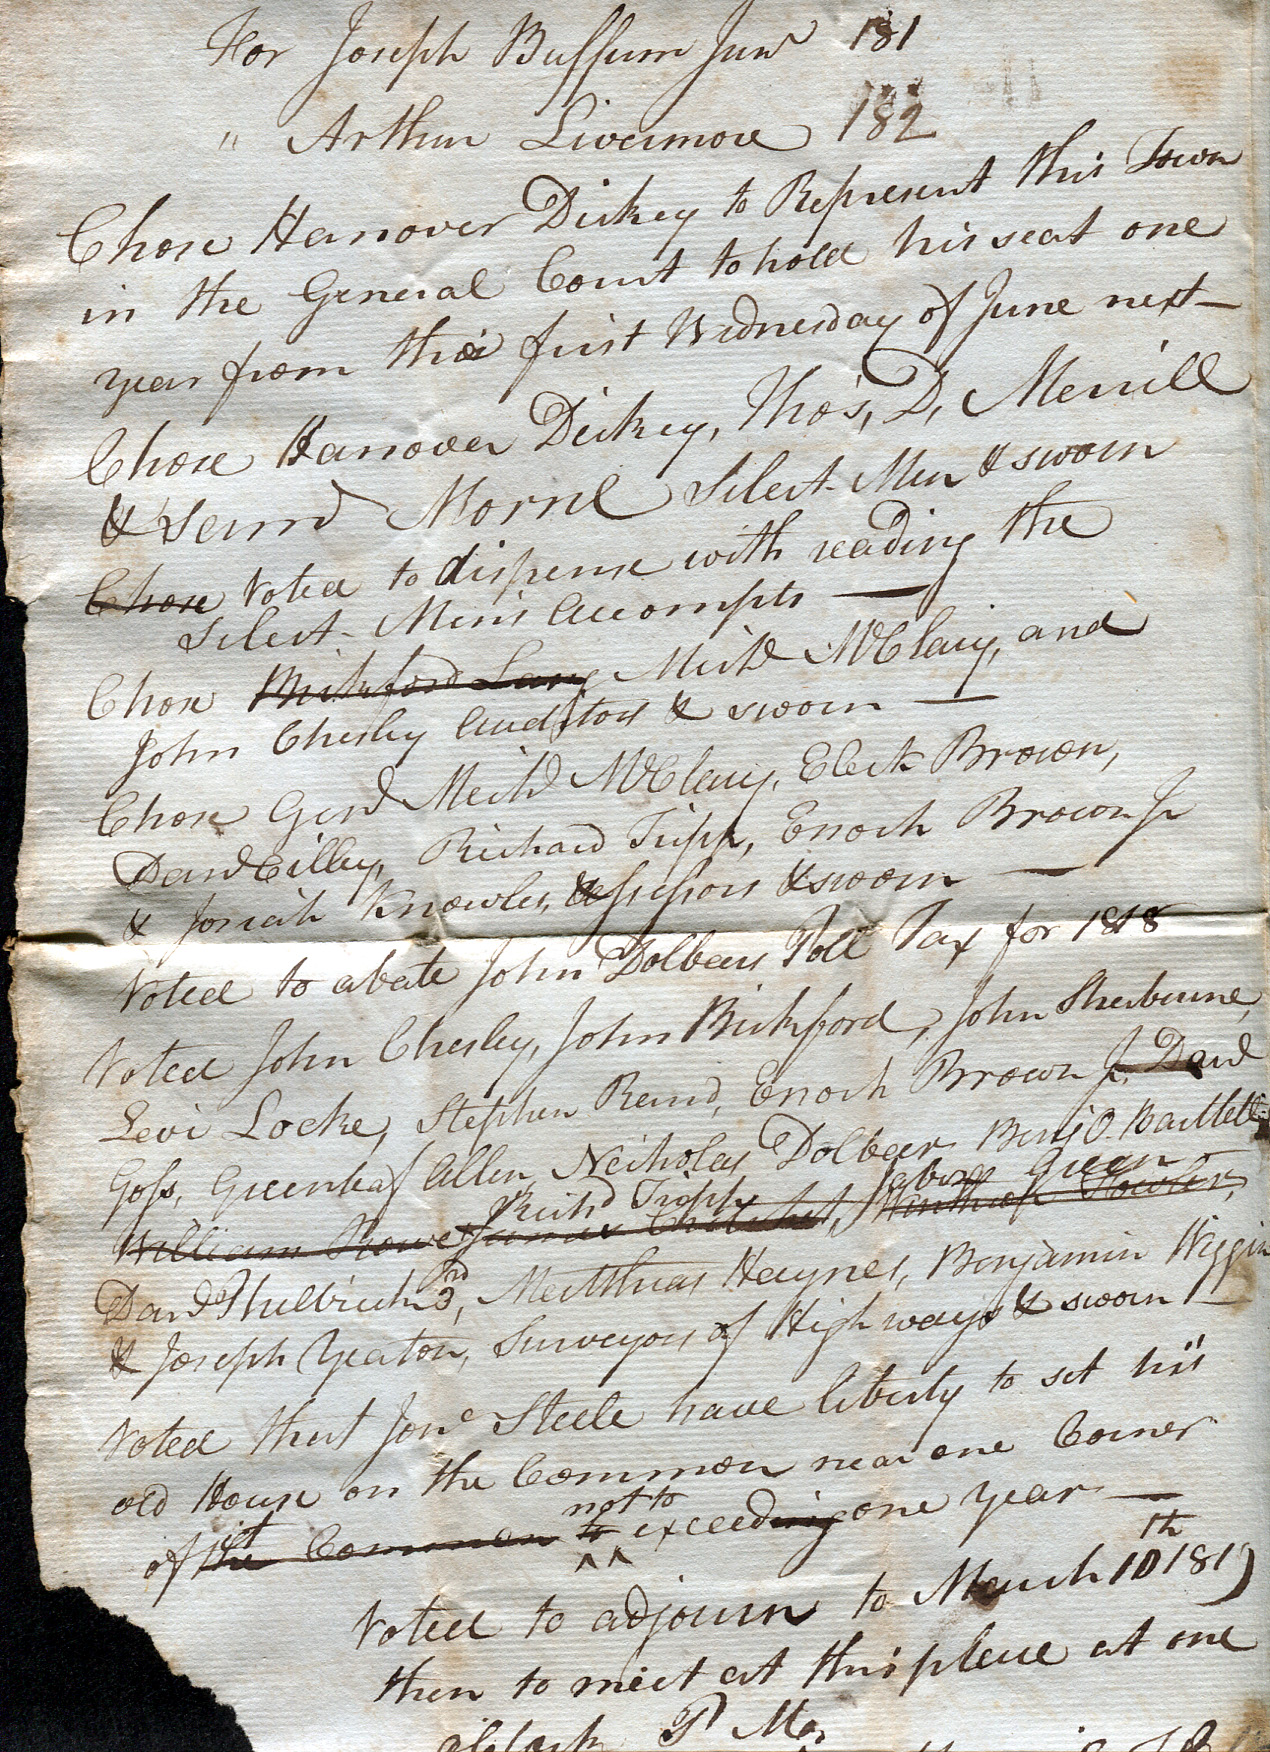 For Joseph Buffum Junr 181
" Arthur Livermore 182
Chose Hanover Dickey to Represent this Town
in the General Court to hold his seat one
year from the first Wednesday of June next—
Chose Hanover Dickey, Thos, D, Merrill
& Saml Morril Select-Men & sworn
Chose Voted to dispense with reading the
Select-Mens Accompts —
Chose Bickford Lang Michl McClary, and
John Chesley Auditors & sworn —
Chose Genl Michl McClary, Eleck Brown,
Danl Cilley, Richard Tripp, Enoch Brown Jr
& Josiah Knowles, Assessors & sworn —
Voted to abate John Dolbeers Poll Tax for 1818
Voted John Chesley, John Bickford, John Sherburne,
Levi Locke, Stephen Rand, Enoch Brown Jr. David
Goss, Greenleaf Allen, Nicholas Dolbeer, Benj O. Bartlett
Richd Tripp Jabez Green
William Rowe James Winthrop Fowler,
Danl Philbrick 3rd, Matthias Haynes, Benjamin Wiggin
& Joseph Yeaton, Surveyors of High ways & sworn —
Voted that Jona Steele have liberty to set his
old House on the Common near one Corner
not to
of it the Common to exceeding one year —
Voted to adjourn to March 10th 1819
then to meet at this place at one
oClock P M.